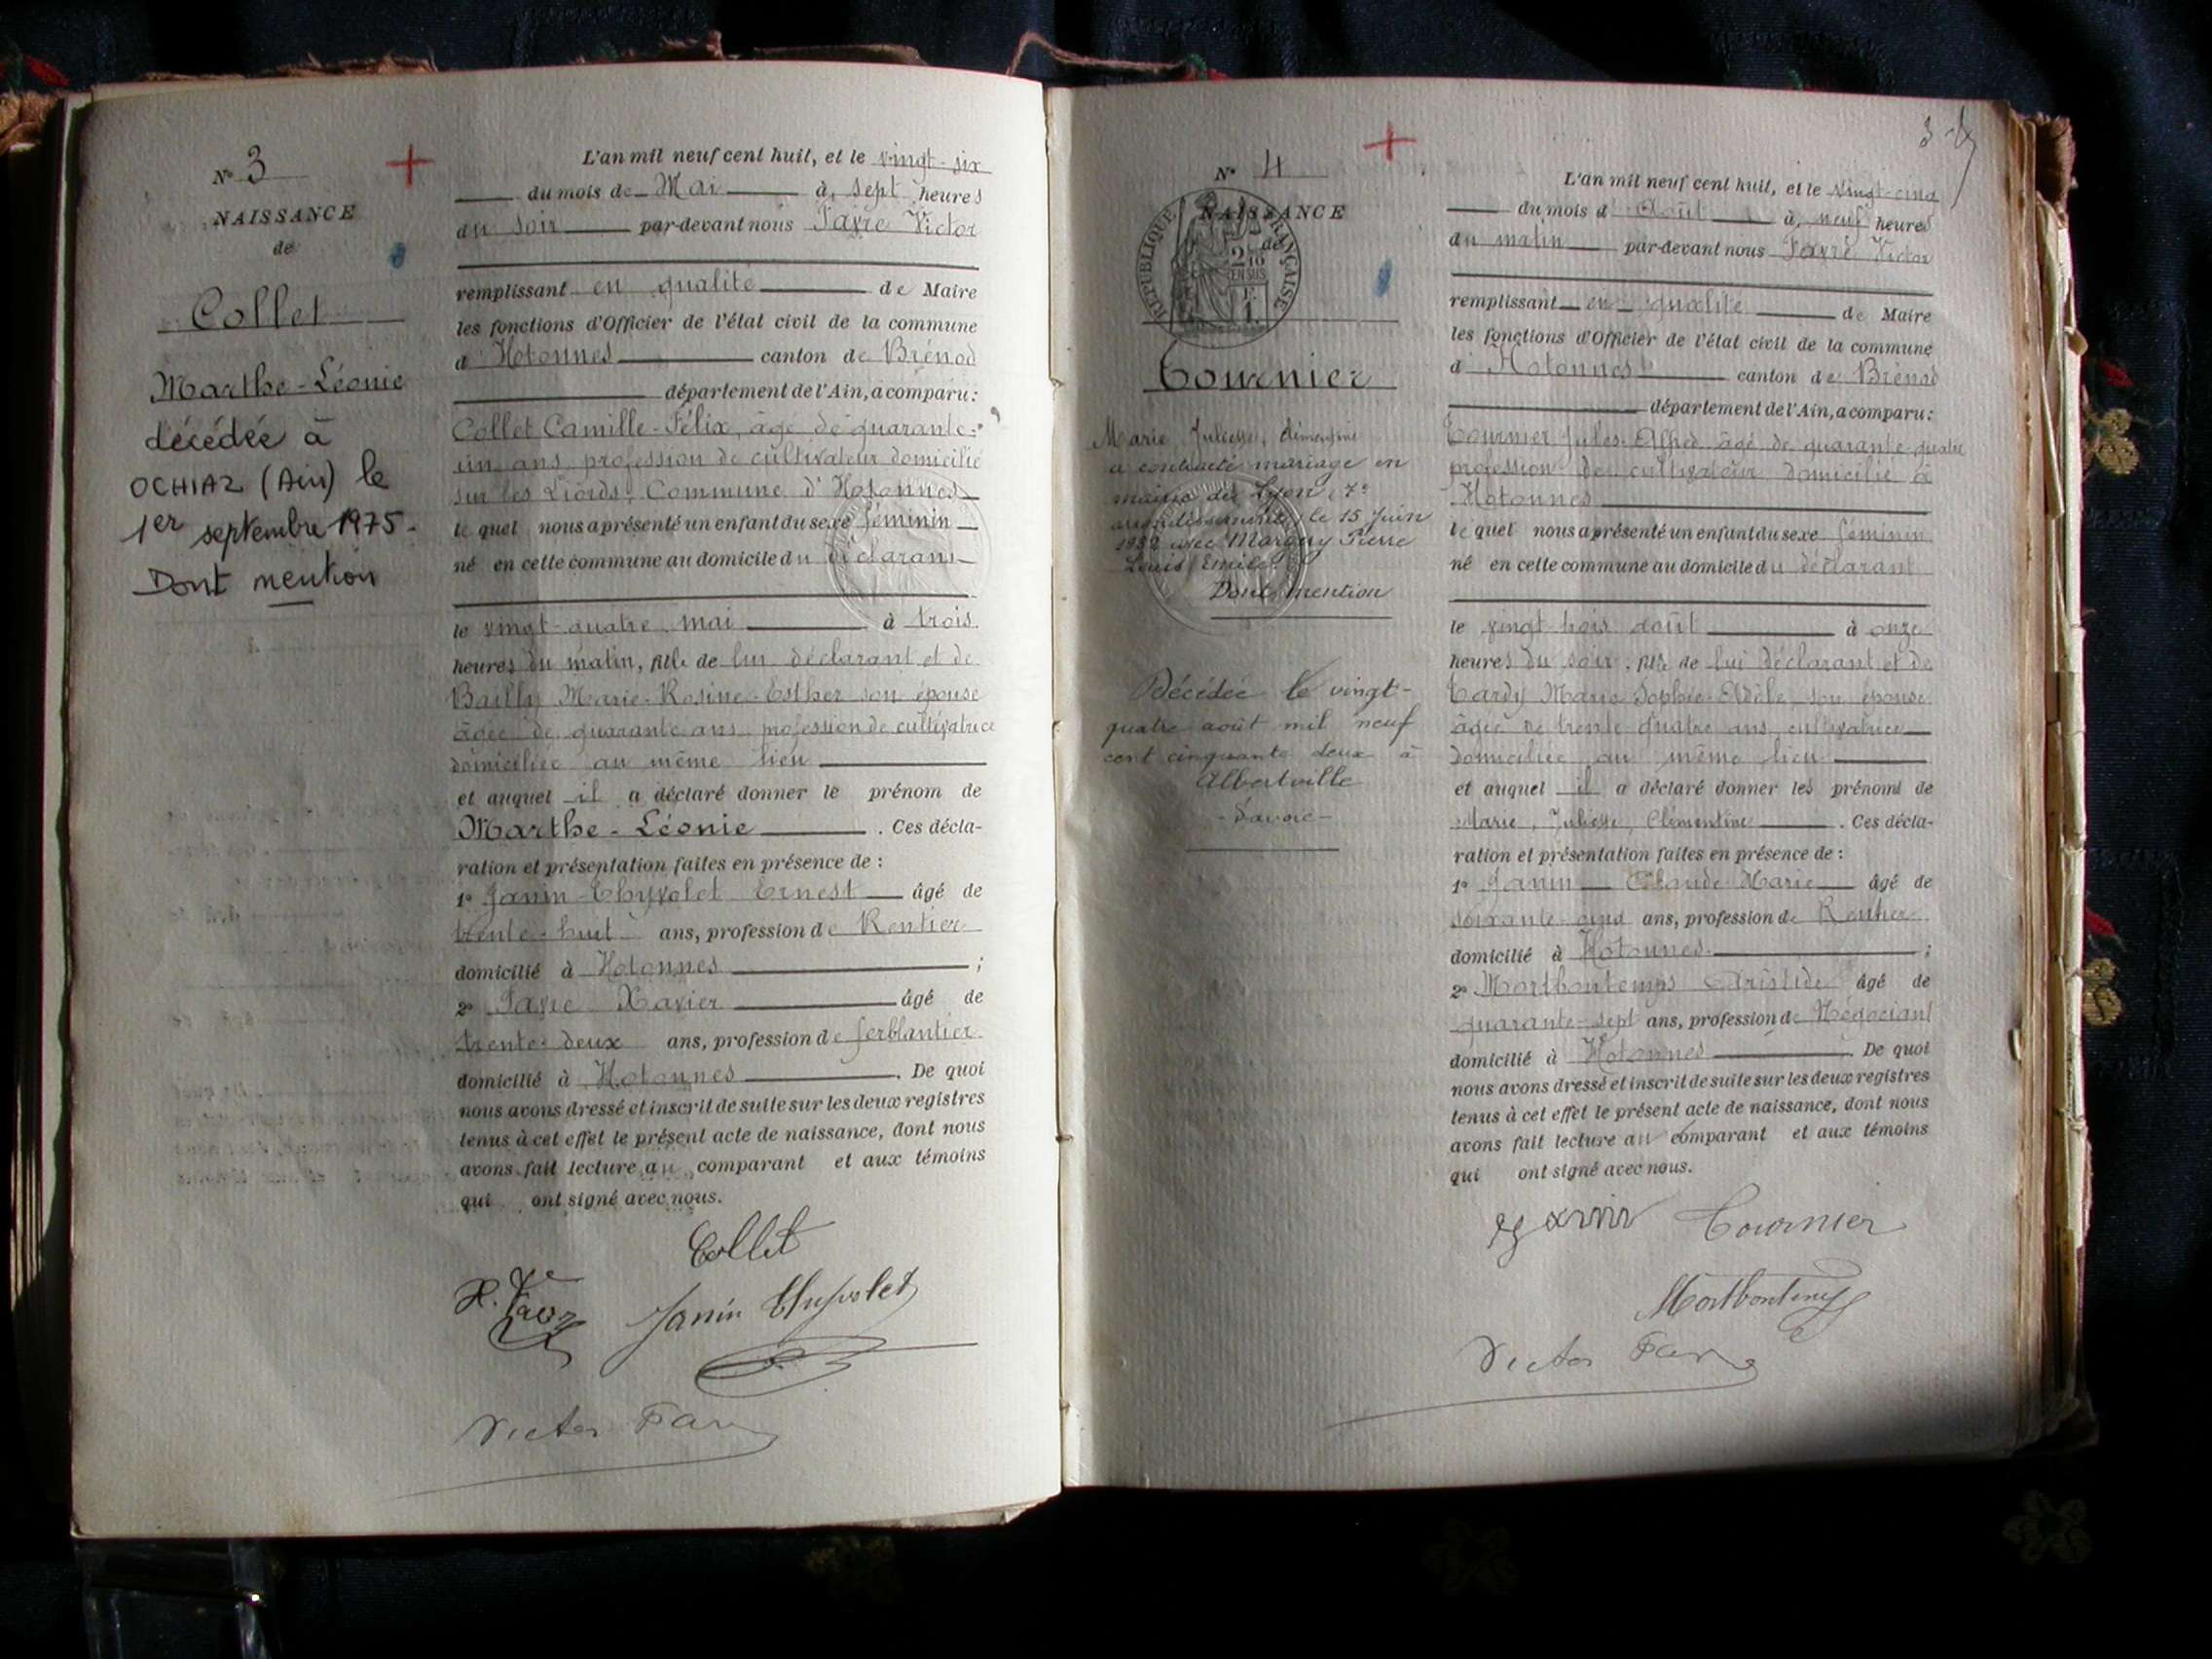 N° 3
NAISSANCE
de
Collet
Marthe-Léonie
décédée à
OCHIAZ (Ain) le
1er septembre 1975.
Dont mention
L'an mil neuf cent huit, et le vingt-six
du mois de Mai à, sept heures
du soir par-devant nous Favre Victor
remplissant en qualité de Maire
les fonctions d'Officier de l'état civil de la commune
d'Hotonnes canton de Brénod
département de l'Ain, a comparu:
Collet Camille-Félix, âgé de quarante-
un ans profession de cultivateur domicilié
sur les Commune d'Hotonnes
le quel nous a présenté un enfant du sexe féminin
né en cette commune au domicile du déclarant
le vingt-quatre mai à trois
heures du matin, fille de lui déclarant et de
Bailly Marie-Rosine-Esther son épouse
âgée de quarante ans profession de cultivatrice
domiciliée au même lieu
et auquel il a déclaré donner le prénom de
Marthe-Léonie . Ces décla-
ration et présentation faites en présence de :
1° Janin-Chyvolet Ernest âgé de
trente-huit ans, profession de Rentier
domicilié à Hotonnes ;
2° Favre Xavier âgé de
trente-deux ans, profession de ferblantier
domicilié à Hotonnes . De quoi
nous avons dressé et inscrit de suite sur les deux registres
tenus à cet effet le présent acte de naissance, dont nous
avons fait lecture au comparant et aux témoins
qui ont signé avec nous.
Collet
X. Favre Janin Chyvolet
Victor Favre
3
N° 4
NAISSANCE
de
RÉPUBLIQUE FRANÇAISE
2/10
EN SUS
Tournier
Marie, Juliesse, Clémentine
a contracté mariage en
mairie de Lyon, 7e
arrondissement, le 15 Juin
1932 avec Margery Pierre
Louis Emile
Dont mention
Décédée le vingt-
quatre août mil neuf
cent cinquante deux à
Albertville
- Savoie -
L'an mil neuf cent huit, et le vingt-cinq
du mois d'Août à, neuf heures
du matin par-devant nous Favre Victor
remplissant en qualité de Maire
les fonctions d'Officier de l'état civil de la commune
d'Hotonnes canton de Brénod
département de l'Ain, a comparu:
Tournier Jules-Alfred âgé de quarante-quatre
profession de cultivateur domicilié à
Hotonnes
le quel nous a présenté un enfant du sexe féminin
né en cette commune au domicile du déclarant
le vingt trois août à onze
heures du soir, fille de lui déclarant et de
Tardy Marie Sophie-Adèle son épouse
âgée de trente quatre ans, cultivatrice
domiciliée au même lieu
et auquel il a déclaré donner les prénoms de
Marie, Juliesse, Clémentine . Ces décla-
ration et présentation faites en présence de :
1° Janin Claude Marie âgé de
soixante-cinq ans, profession de Rentier
domicilié à Hotonnes ;
2° Mortbontemps Aristide âgé de
quarante-sept ans, profession de Négociant
domicilié à Hotonnes . De quoi
nous avons dressé et inscrit de suite sur les deux registres
tenus à cet effet le présent acte de naissance, dont nous
avons fait lecture au comparant et aux témoins
qui ont signé avec nous.
Tournier
Mortbontemps
Victor Favre